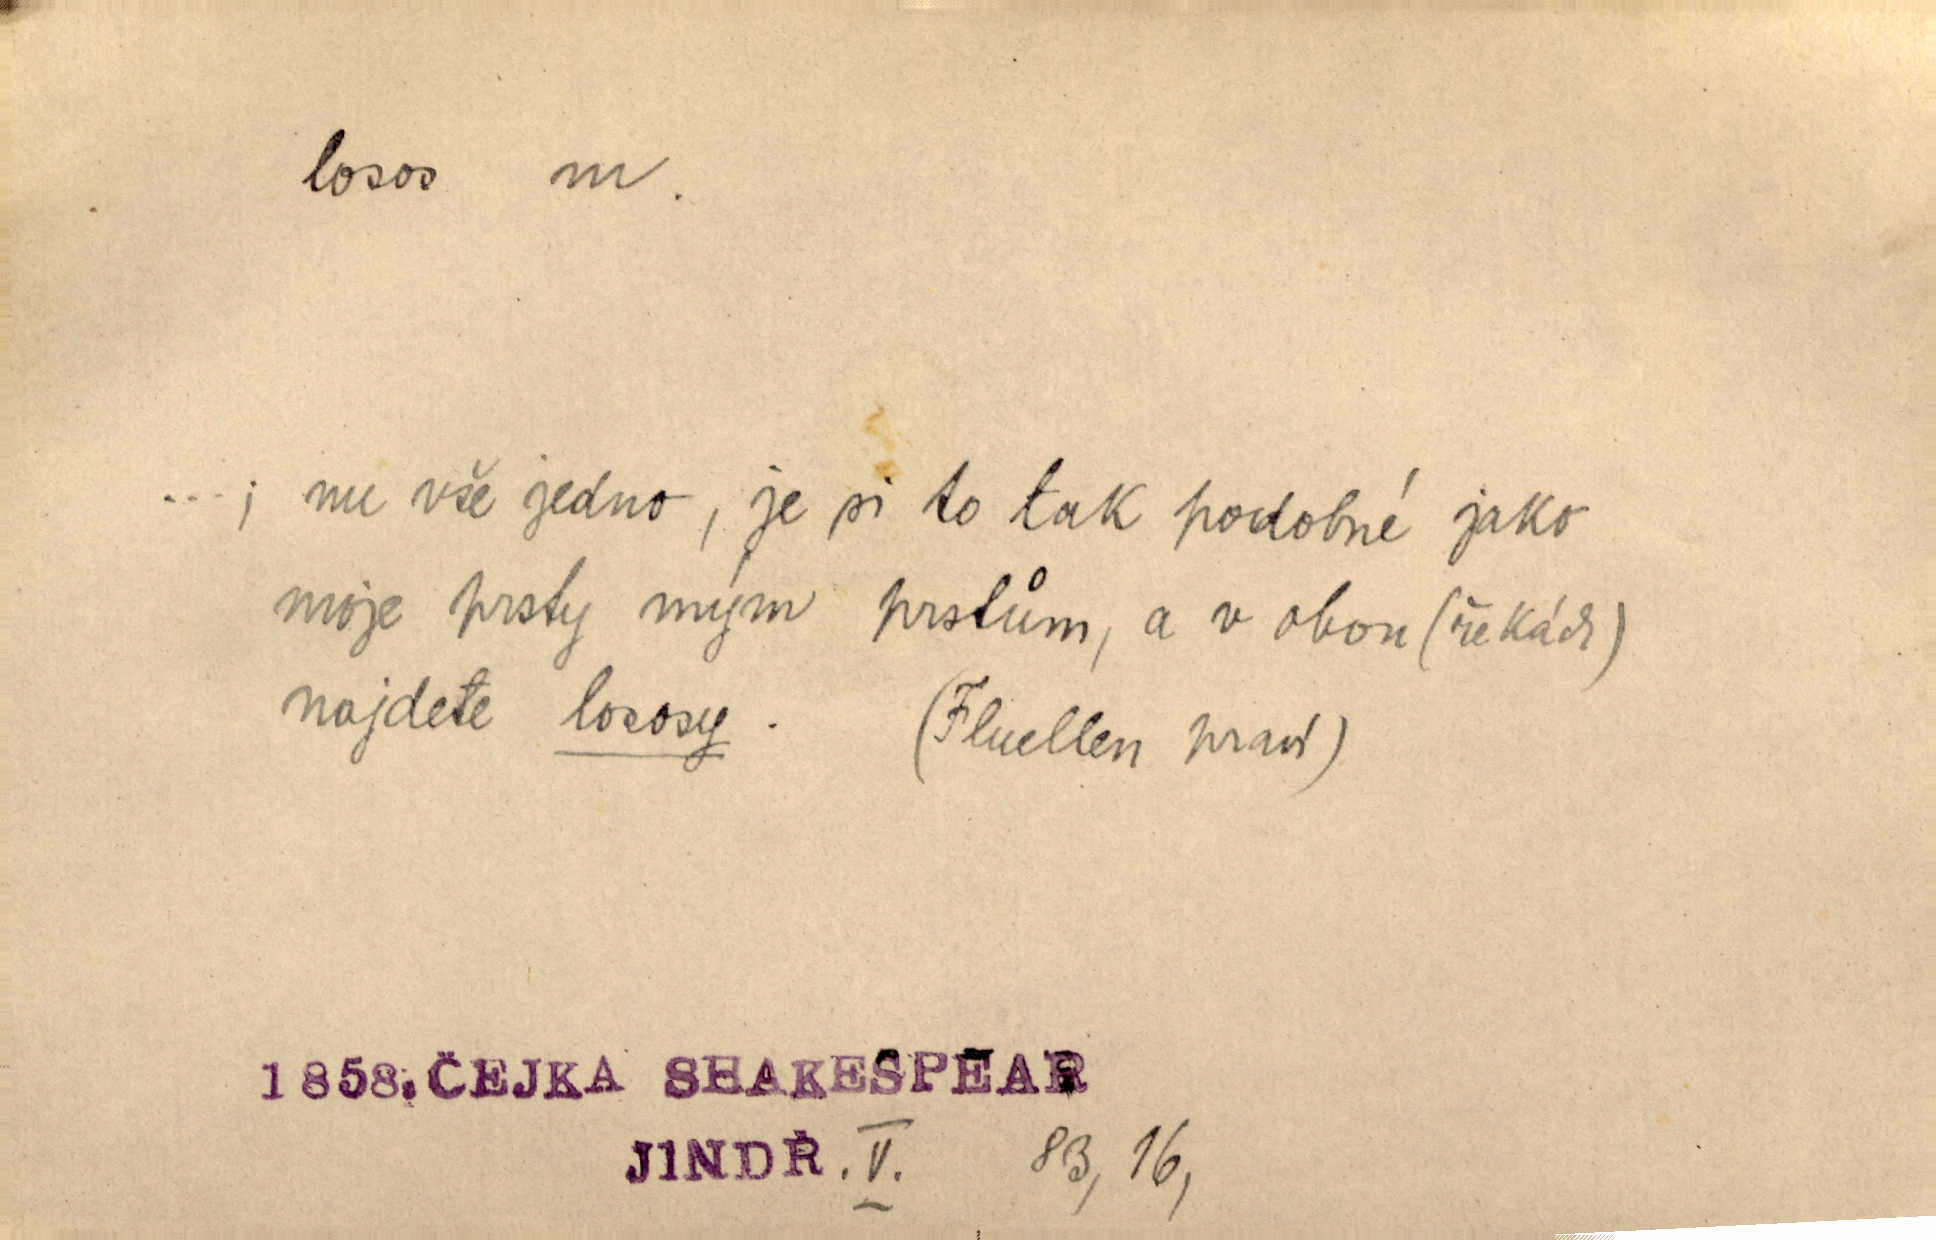 losos m.
...; nu vše jedno, je si to tak podobné jako
moje prsty mým prstům, a v obou (řekách)
najdete lososy. (Fluellen praví)
1858: ČEJKA SHAKESPEAR
JINDŘ. V. 83, 16,